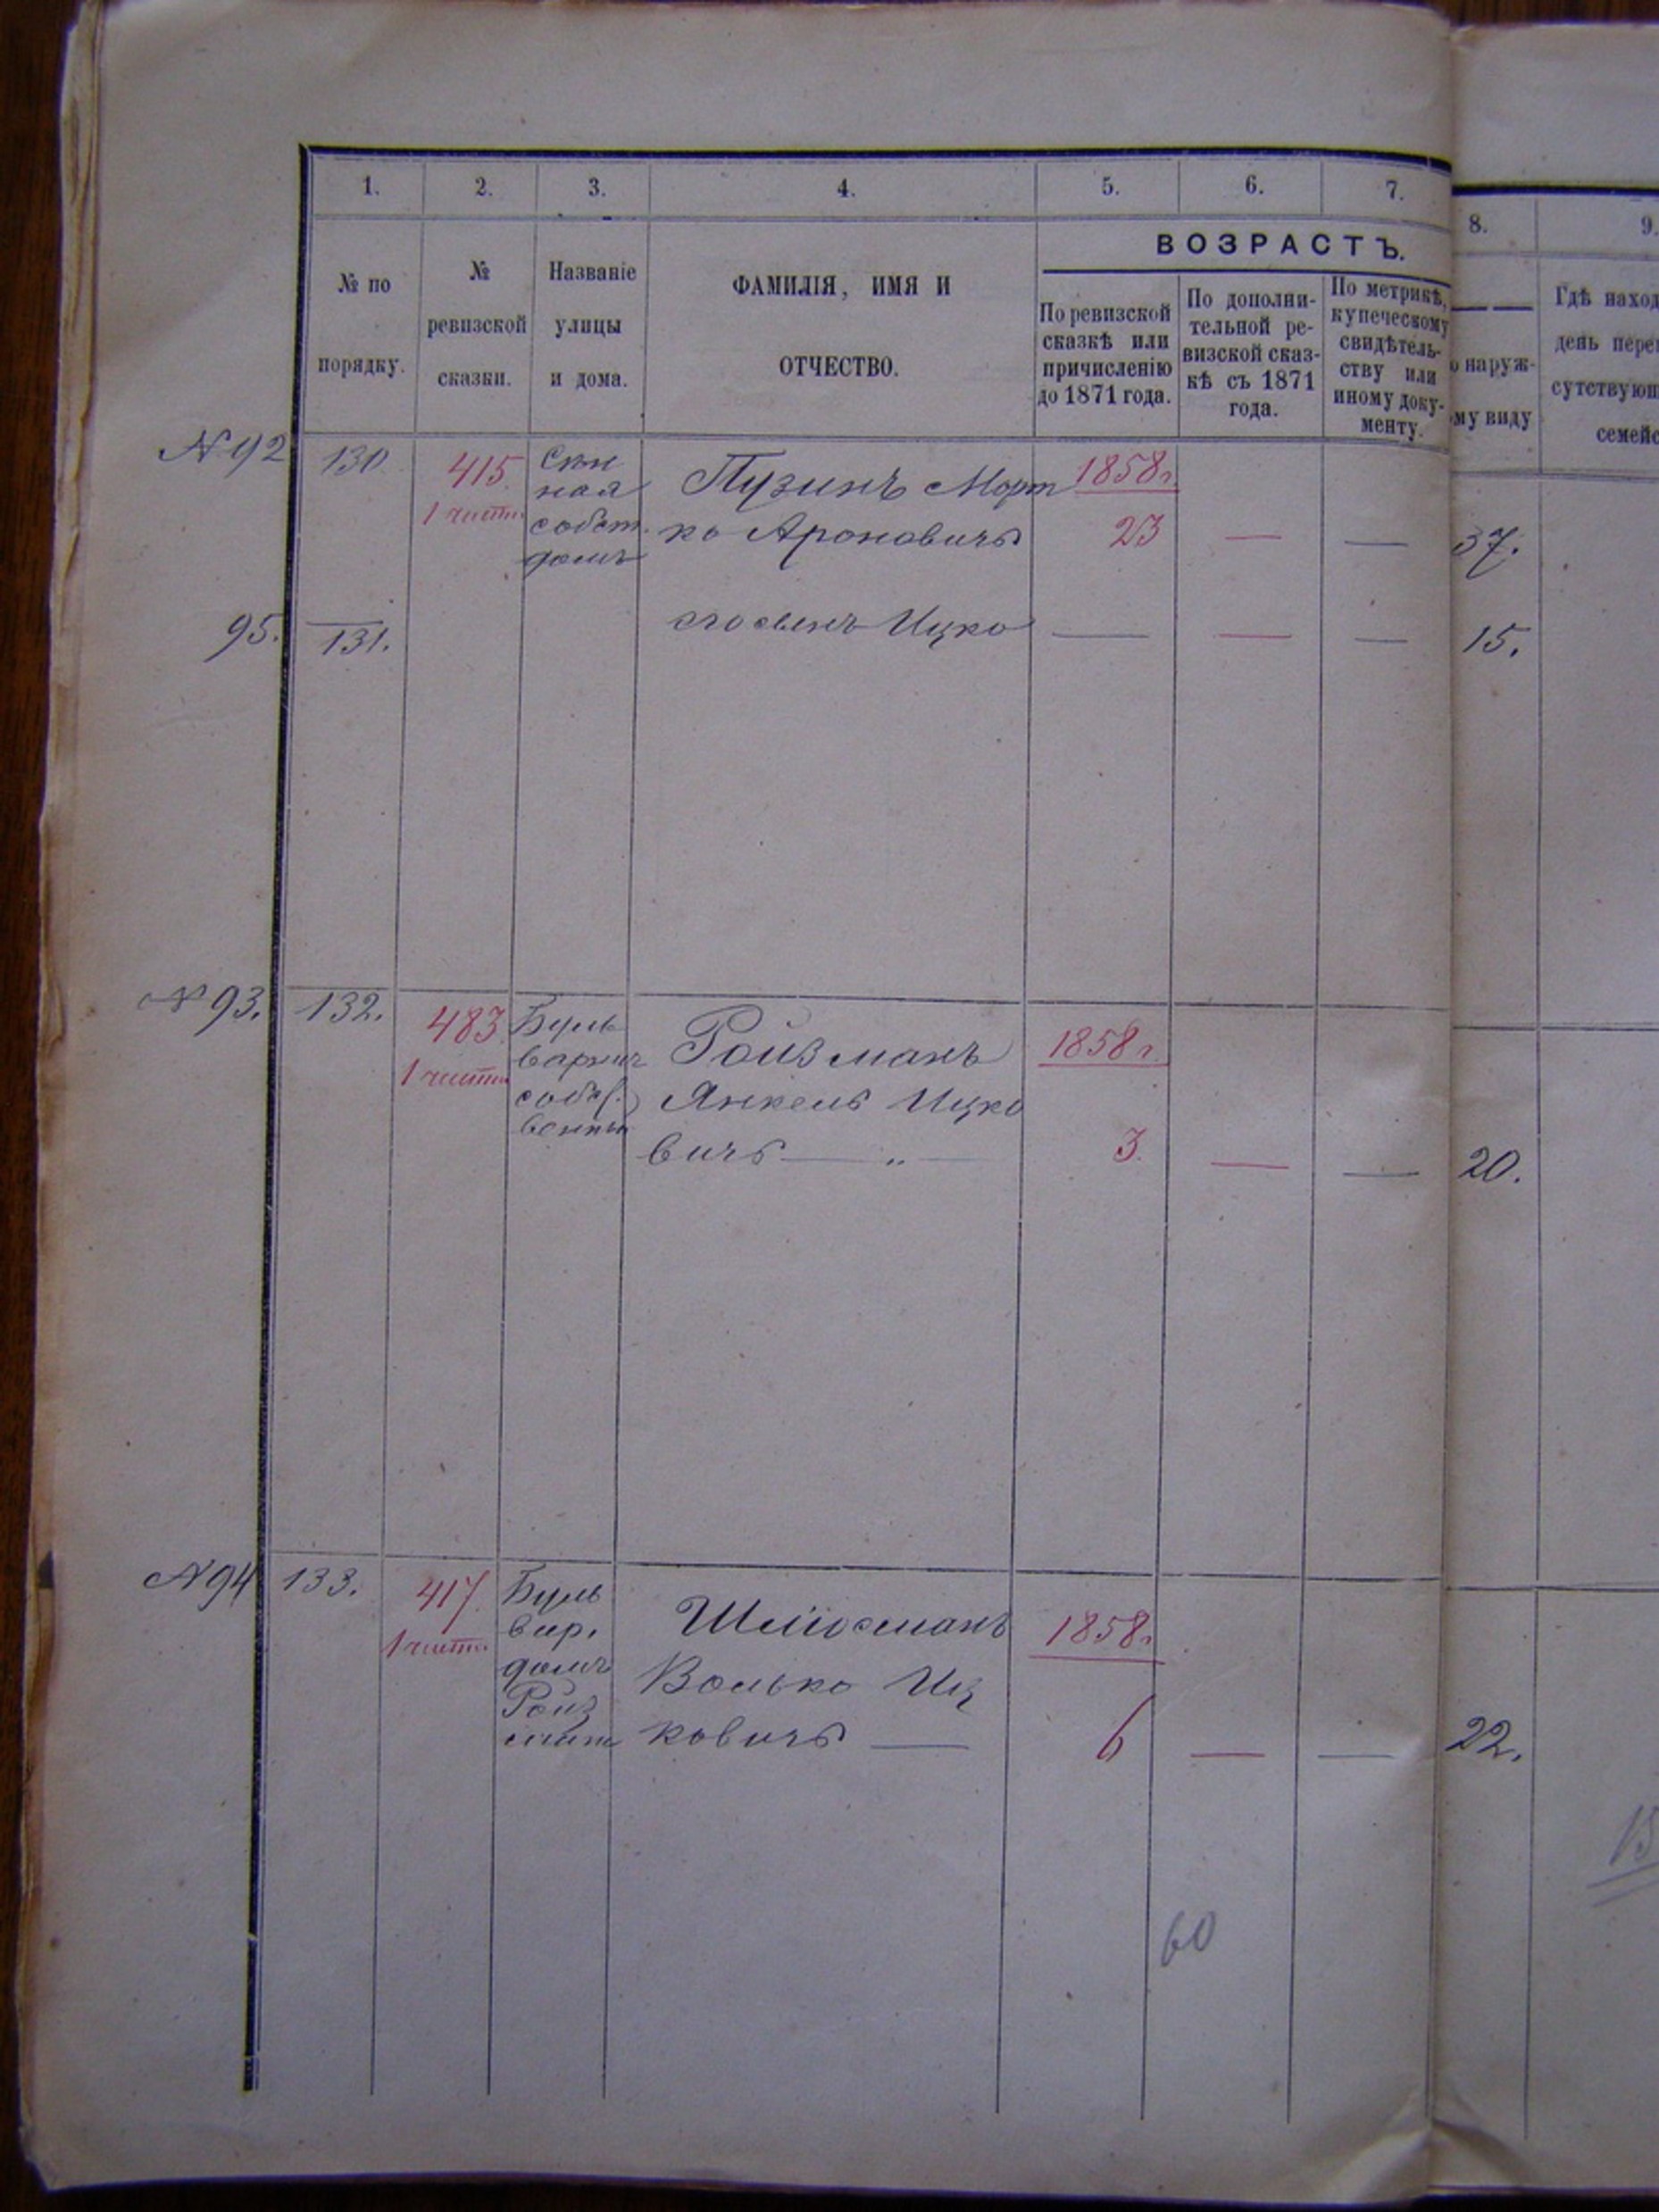 1. 2. 3. 4. 5. 6. 7. 8. 9.
ВОЗРАСТЪ.
№ по
порядку.
№
ревизской
сказки.
Названіе
улицы
и дома.
ФАМИЛІЯ, ИМЯ И
ОТЧЕСТВО.
По ревизской
сказкѣ или
причисленію
до 1871 года.
По дополни-
тельной ре-
визской сказ-
кѣ съ 1871
года.
По метрикѣ,
купеческому
свидѣтель-
ству или
иному доку-
менту.
наруж-
му виду
Гдѣ наход
день пере
сутствующ
семейс
№ 92
130
415.
1 части
ная
собст.
домъ
Пузинъ Морт
ко Ароновичъ
1858 г.
23
—
—
37.
95.
131.
его сынъ Ицко
—
—
—
15.
№ 93.
132.
483
1 части
Буль
варная
собст.
венный
Ройзманъ
Янкель Ицко
вичъ — „ —
1858 г.
3.
—
—
20.
№ 94
133.
417.
1 части
Буль
вар.
домъ
Ройз
Волько Иц
ковичъ —
1858 г
6
—
—
22.
60
15